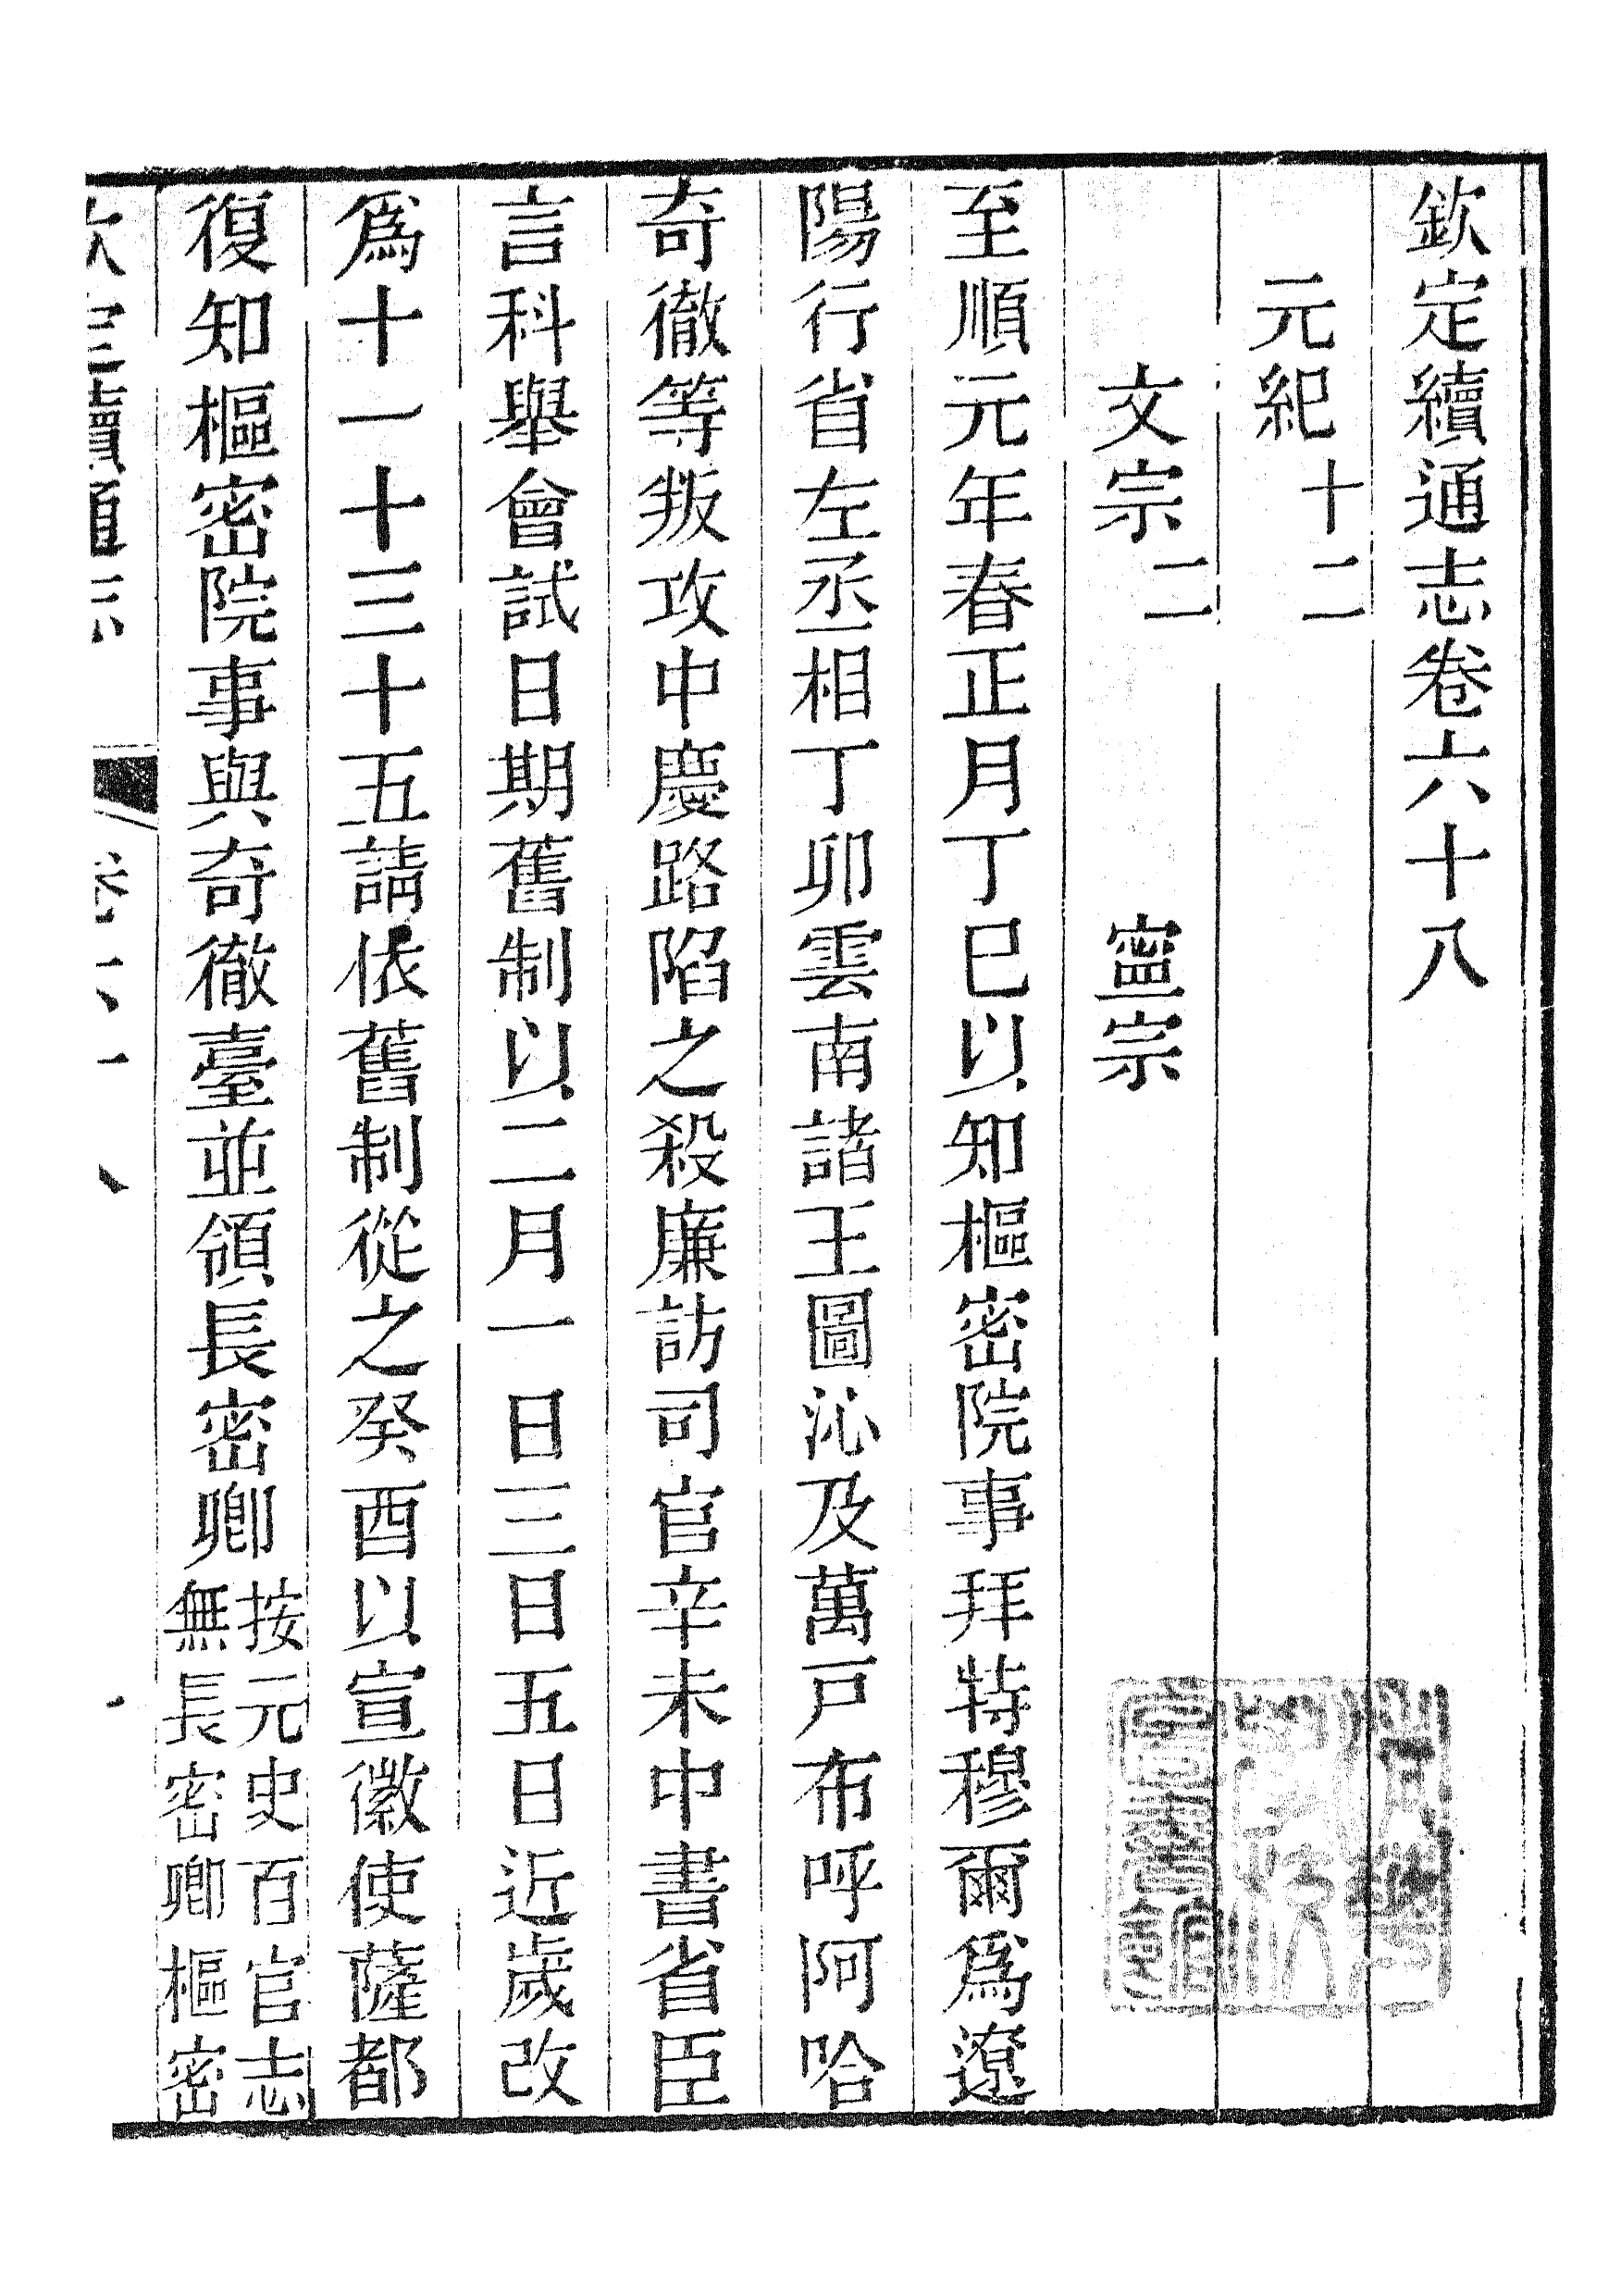 欽定續通志卷六十八
元紀十二
文宗二　寍宗
至順元年春正月丁巳以知樞密院事拜特穆爾爲遼
陽行省左丞相丁卯雲南諸王圖沁及萬戸布呼阿哈
奇徹等叛攻中慶路陷之殺廉訪司官辛未中書省臣
言科舉會試日期舊制以二月一日三日五日近歲改
爲十一十三十五請依舊制從之癸酉以宣徽使薩都
復知樞密院事與奇徹臺並領長密卿按元史百官志
無長密卿樞密